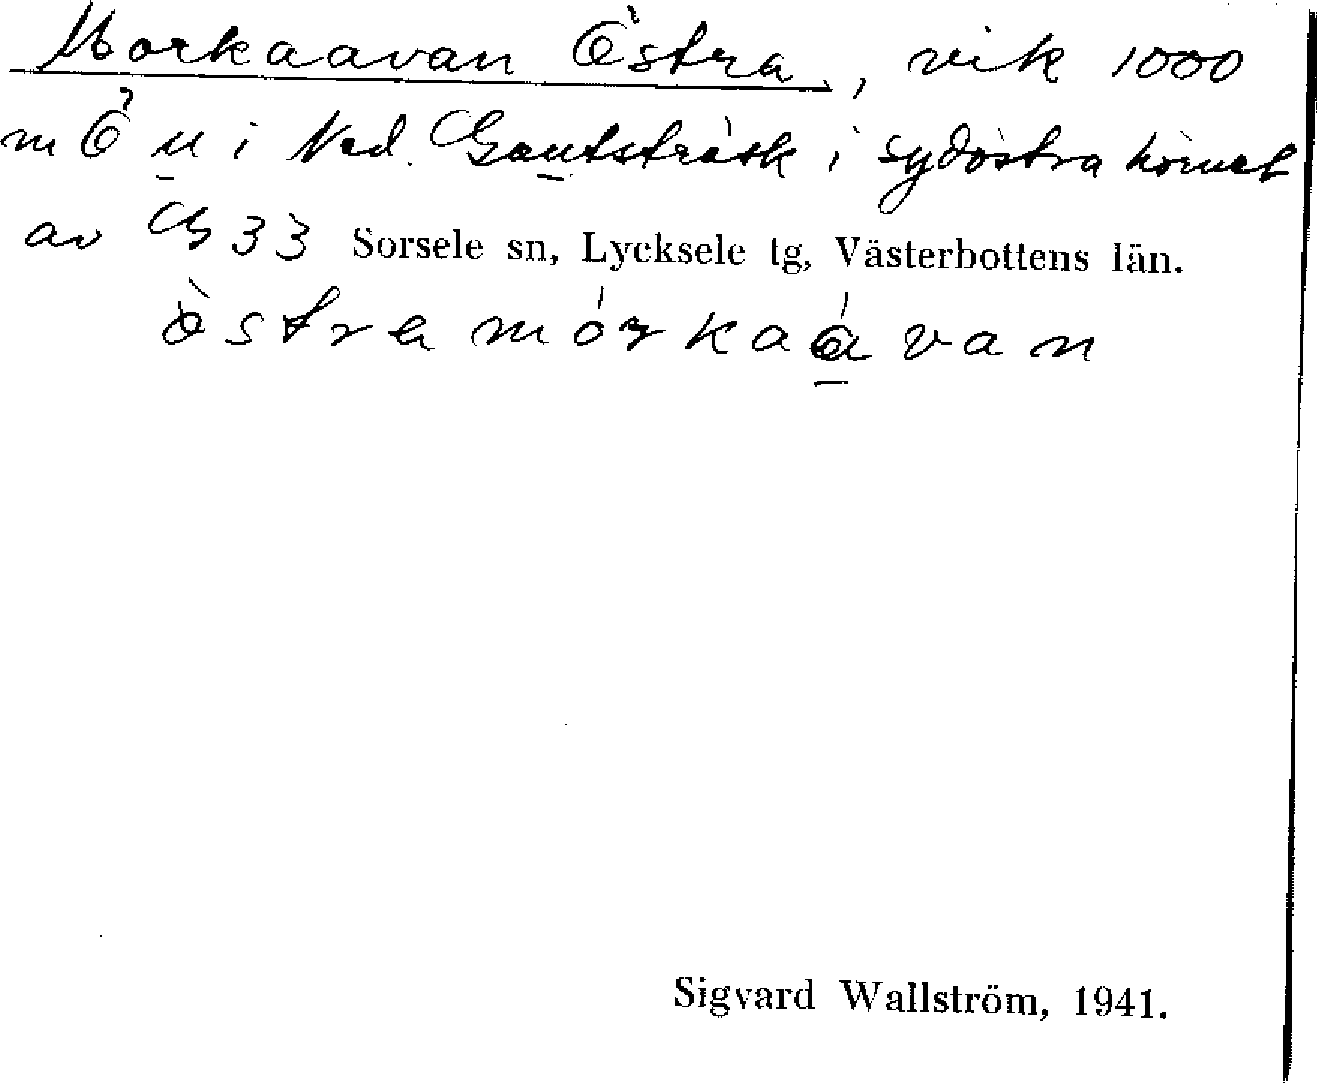 Morkaavan Östra, vik 1000
m Ö u i Ned. Gautsträsk i sydöstra hörnet
av G 33 Sorsele sn, Lycksele tg, Västerbottens län.
òstra mórkaávan
Sigvard Wallström, 1941.